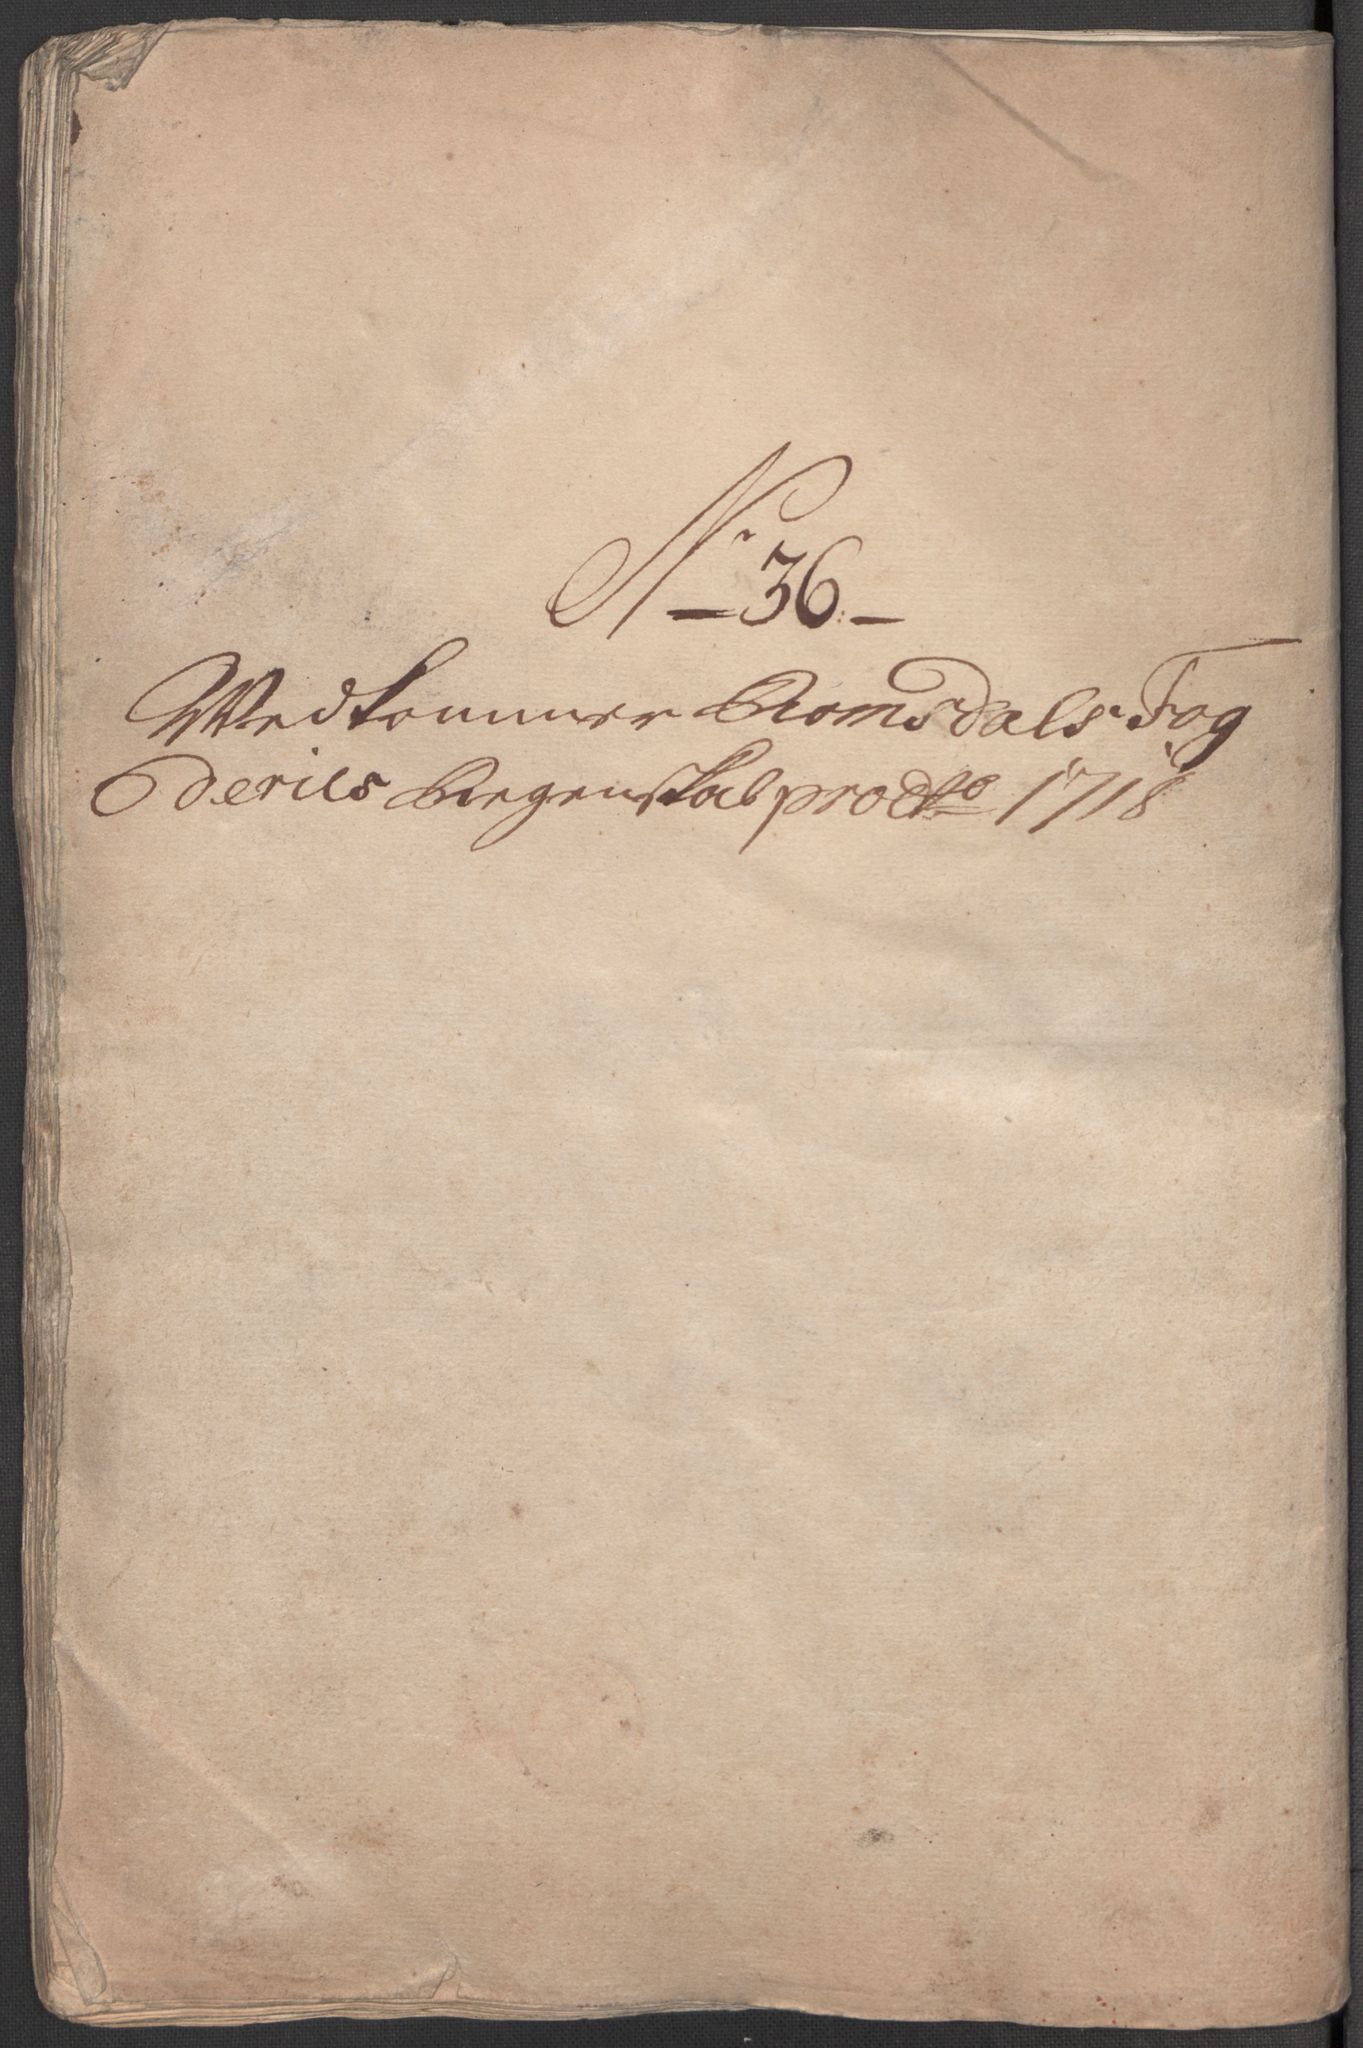 Nr 36.
Wedkommer Romsdals Fog
deries Regenskab pro Ao 1718